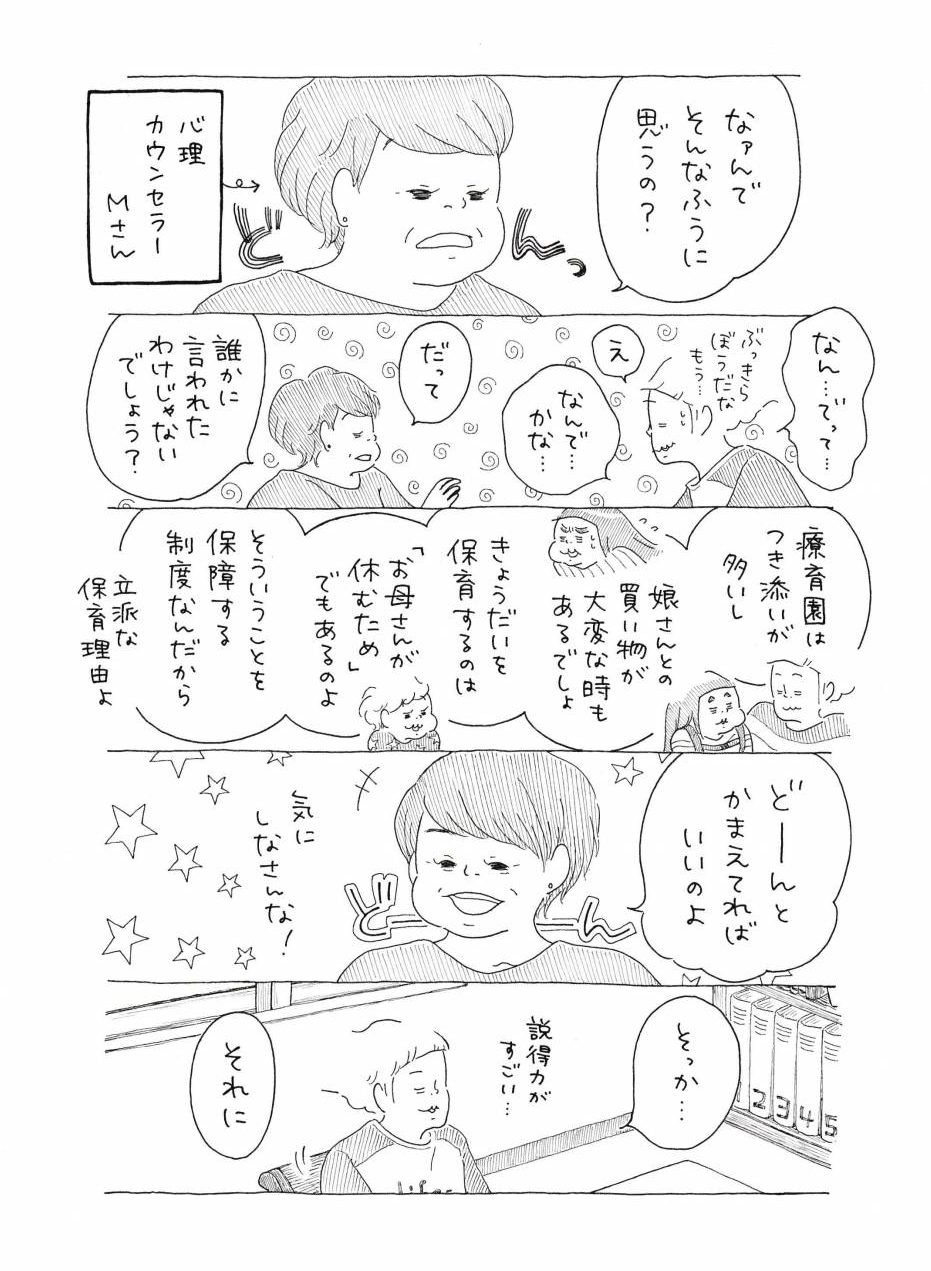 なァんで
そんなふうに
思うの？
どんっ
心理
カウンセラー
Mさん
なん…でって…
ぶっきら
ぼうだな
もう…
え
なんで…
かな…
だって
誰かに
言われた
わけじゃない
でしょう？
療育園は
つき添いが
多いし
娘さんとの
買い物が
大変な時も
あるでしょ
きょうだいを
保育するのは
「お母さんが
休むため」
でもあるのよ
そういうことを
保障する
制度なんだから
立派な
保育理由よ
どーんと
かまえてれば
いいのよ
どーん
気に
しなさんな！
そっか…
説得力が
すごい…
それに
1
2
3
4
5